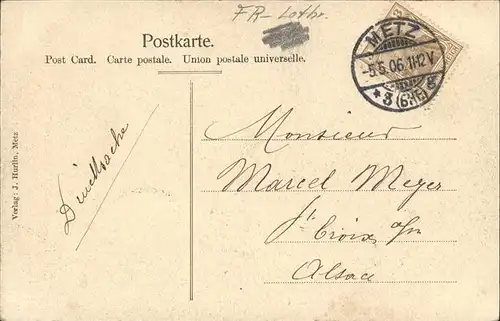 FR- Lothr.
Postkarte.
Post Card. Carte postale. Union postale universelle.
METZ
-5.5.06.11-12V.
Drucksache
Verlag: J. Hurlin, Metz
Monsieur
Marcel Meyer
Ste Croix a/m
Alsace